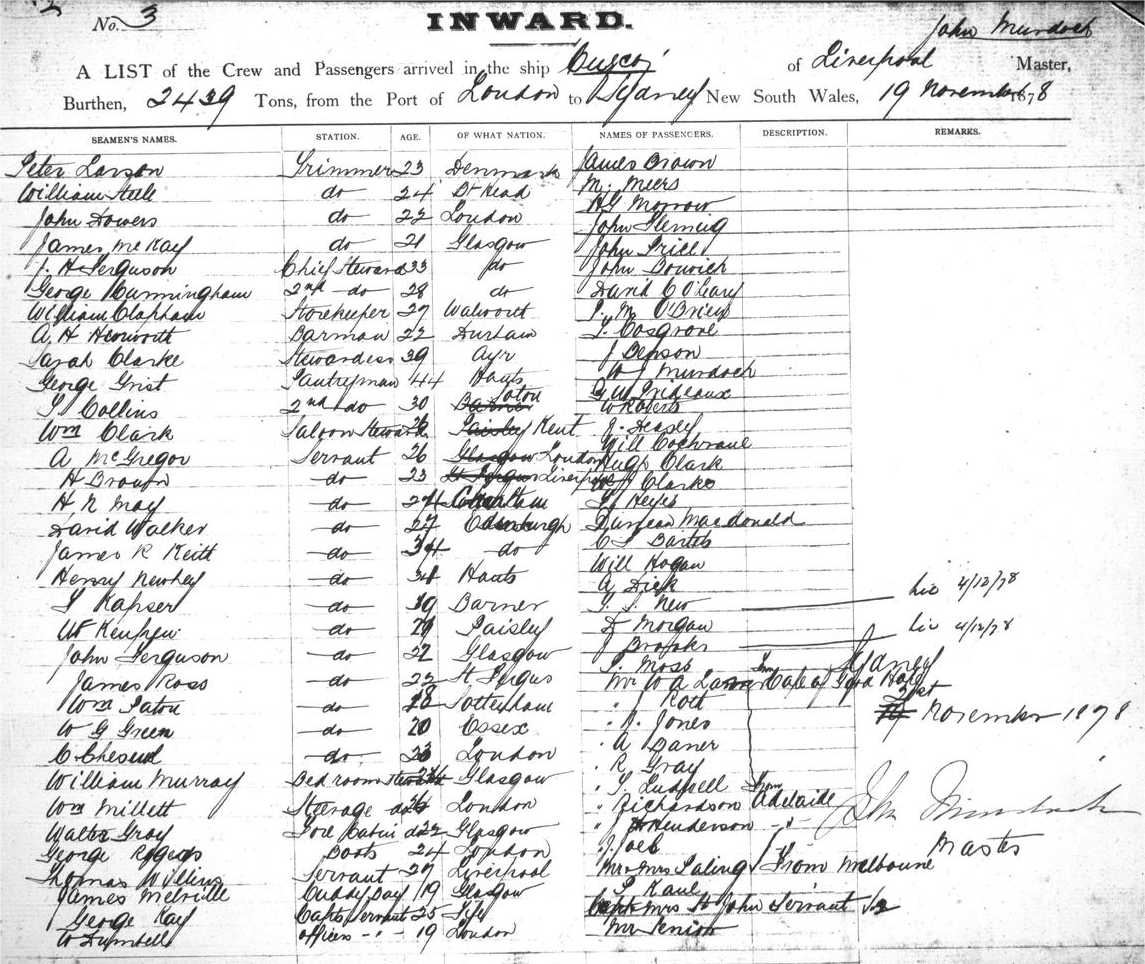 No. 3
INWARD.
John Murdoch
A LIST of the Crew and Passengers arrived in the ship Cuzco of Liverpool Master,
Burthen, 2439 Tons, from the Port of London to Sydney New South Wales, 19 November 1878
SEAMEN'S NAMES. STATION. AGE. OF WHAT NATION. NAMES OF PASSENGERS. DESCRIPTION. REMARKS.
Peter Larson Trimmer 23 Denmark James Brown
William Steele do 24 Bt Head M. Meers
John Dowers do 22 London HG Morrow
James McKay do 21 Glasgow John Fleming
J. H Ferguson Chief Steward 33 do John Price
George Cunningham 2nd do 28 do John Borwick
William Clapham Storekeeper 27 Walworth David C O'Leary
A. H Henworth Barman 22 Durham P. M. O'Brien
Sarah Clarke Stewardess 39 Ayr T. Cosgrove
George Grist Pantryman 44 Hants J Benson
T Collins 2nd do 30 W J Murdoch
Wm Clark Saloon Steward Kent G W Prideaux
A McGregor Servant 26 London W Roberts
H Brown do 23 Liverpool J. Heasley
H N May do 24 Will Cochrane
David Walker do 27 Edinburgh Hugh Clark
James R Keith do 34 do W J Clarke
Henry Newhey do Hants Heyes
T Kapser do Barner Duncan Macdonald
W Renfrew do Paisley C S Bartels
John Ferguson do 22 Glasgow Will Hogan
James Ross do 22 St Fergus A Dick
Wm Paton do 28 Tottenham T. J. New liv 4/12/78
W G Green do 20 Essex D Morgan liv 4/12/78
C do 23 London J Brooks
William Murray Bed room Steward Glasgow T. Moss
Wm Millett Steerage do 26 London Mr W A from Cape of Good Hope
Walter Gray Fore Cabin do 22 Glasgow " J Rott
George Rogers Boots 24 London " J. Jones
Thomas Wilkins Servant 27 Liverpool " A Daner
James Melville Cuddy Boy 19 Glasgow " R Gray
George Kay Capts Servant 25 Fife " T. Ludnell
W Dumbell officers " 19 London " Richardson from Adelaide
" Henderson "
J. Joel
Mr Mrs Paling from Melbourne
Kaul
Capt Mrs St John Servant
Mr
Sydney
21st November 1878
John Murdoch
Master